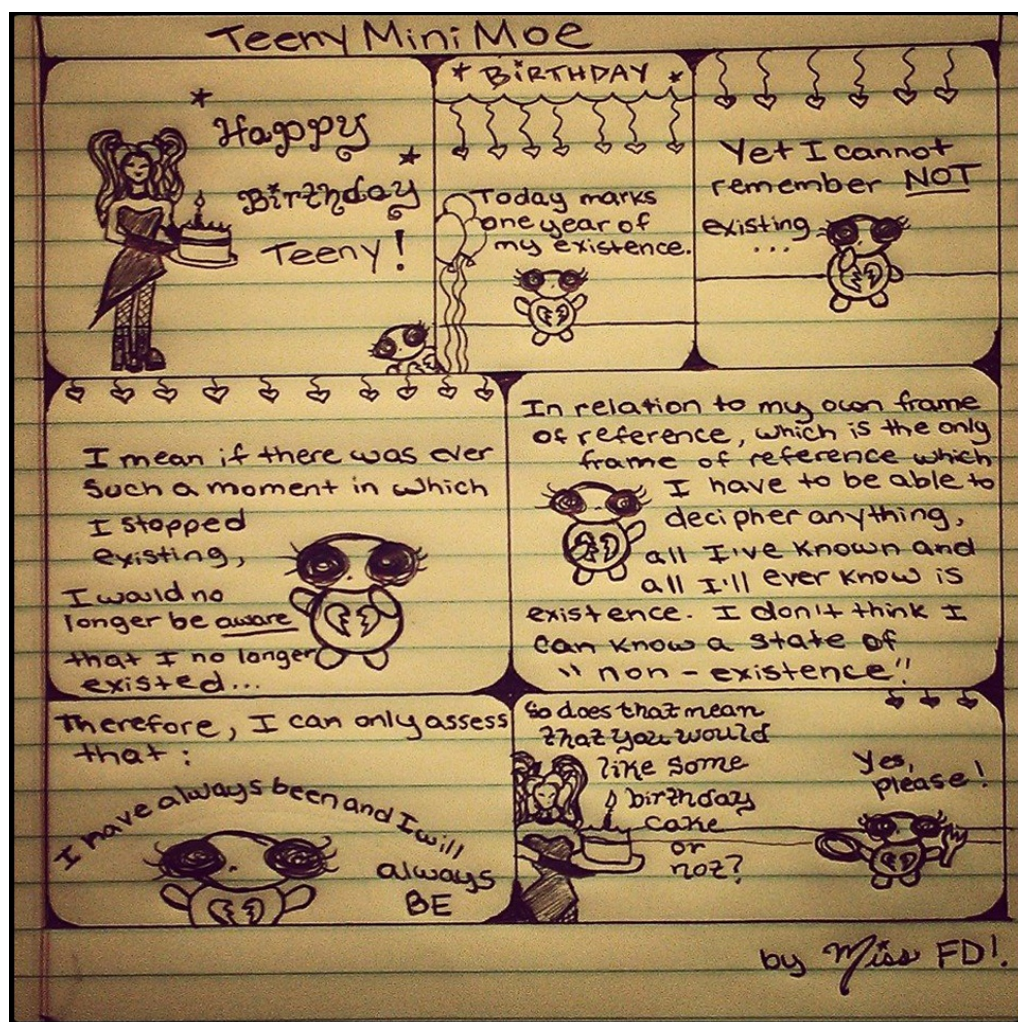 Teeny Mini Moe
Happy
Birthday
Teeny!
* BiRTHDAY *
Today marks
one year of
my existence.
Yet I cannot
remember NOT
existing
...
I mean if there was ever
such a moment in which
I stopped
existing,
I would no
longer be aware
that I no longer
existed...
In relation to my own frame
of reference, which is the only
frame of reference which
I have to be able to
decipher anything,
all I've known and
all I'll ever know is
existence. I don't think I
can know a state of
"non-existence"!
Therefore, I can only assess
that:
I have always been and I will
always
BE
So does that mean
that you would
like some
birthday
cake
or
not?
Yes,
please!
by Miss FD!.